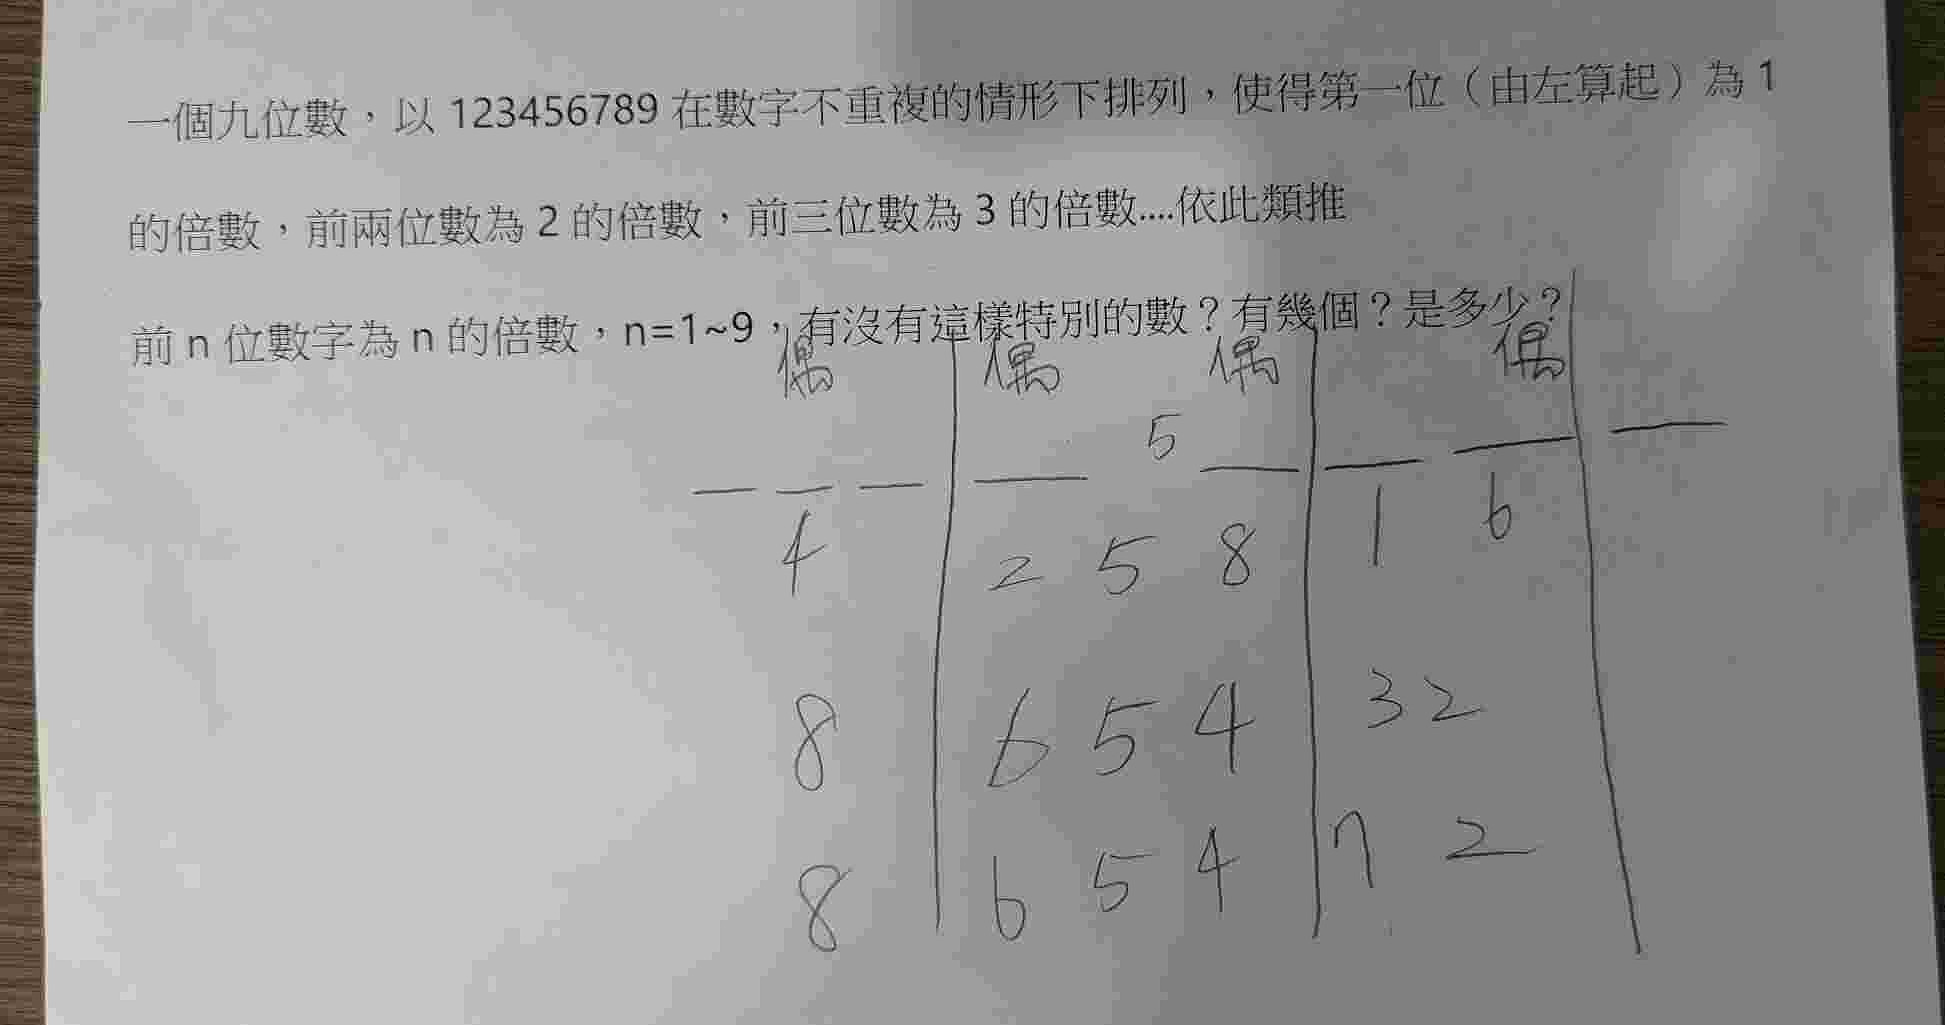 一個九位數，以 123456789 在數字不重複的情形下排列，使得第一位（由左算起）為 1
的倍數，前兩位數為 2 的倍數，前三位數為 3 的倍數....依此類推
前 n 位數字為 n 的倍數，n=1~9，有沒有這樣特別的數？有幾個？是多少？
偶 偶 偶 偶
5
4 2 5 8 1 6
8 6 5 4 3 2
8 6 5 4 7 2